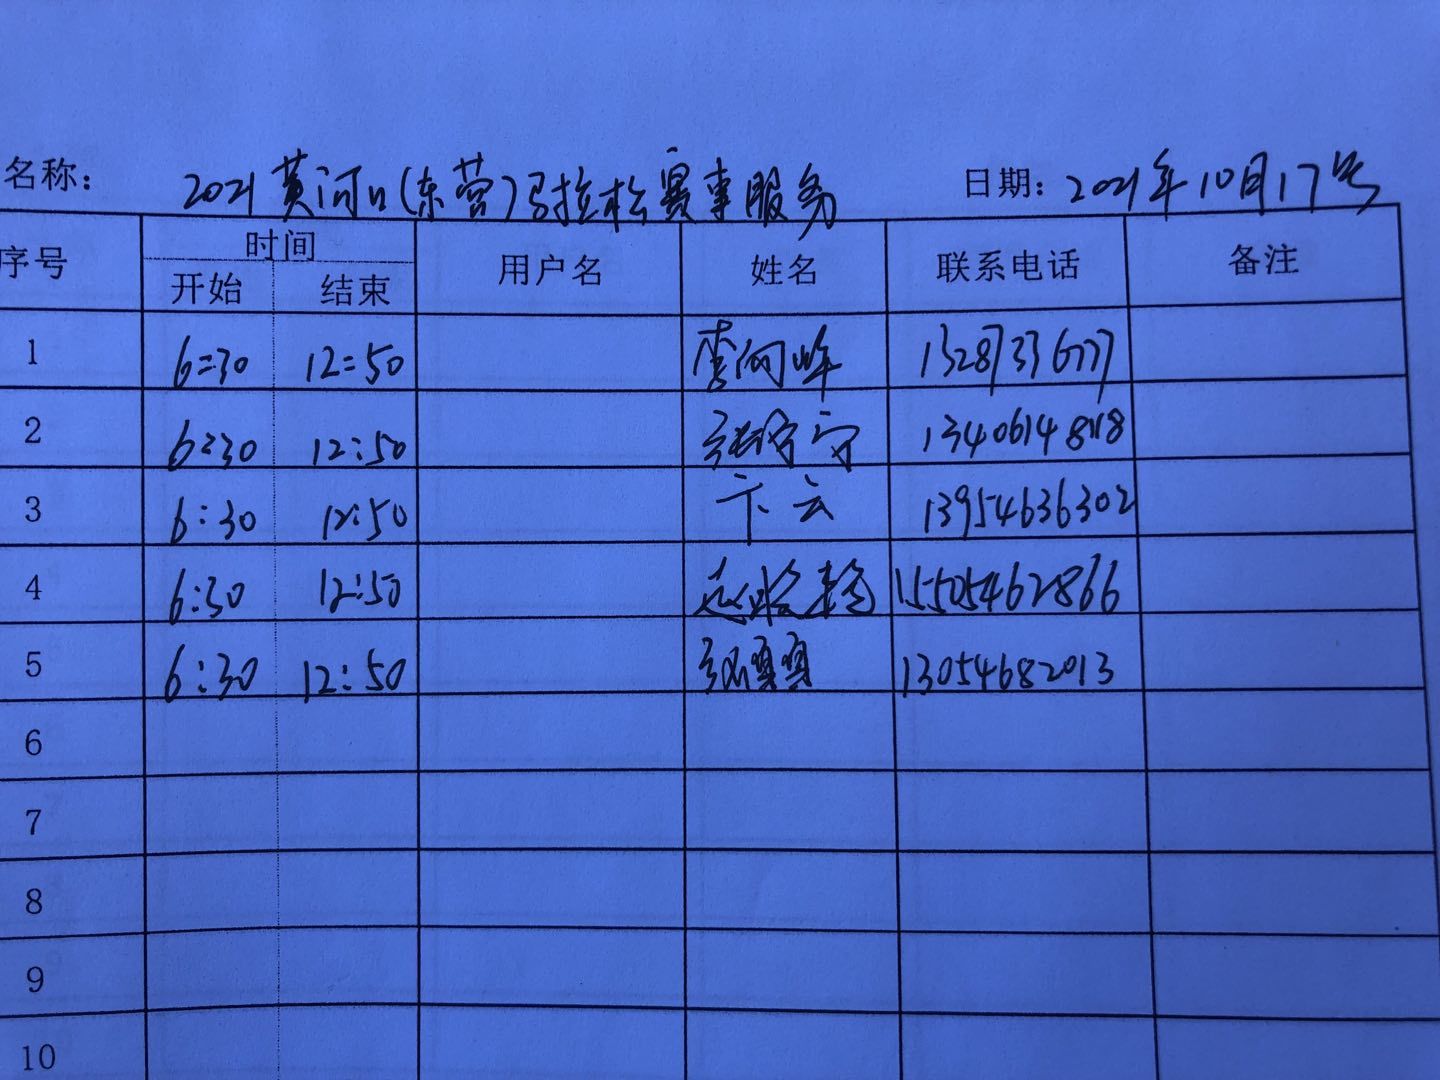 名称： 2021黄河口(东营)马拉松赛事服务 日期：2021年10月17号
序号 时间 用户名 姓名 联系电话 备注
开始 结束
1 6:30 12:50 李向峰 13287336777
2 6:30 12:50 13406148118
3 6:30 12:50 卞云 13954636302
4 6:30 12:50 15505462866
5 6:30 12:50 张真真 13054682013
6
7
8
9
10